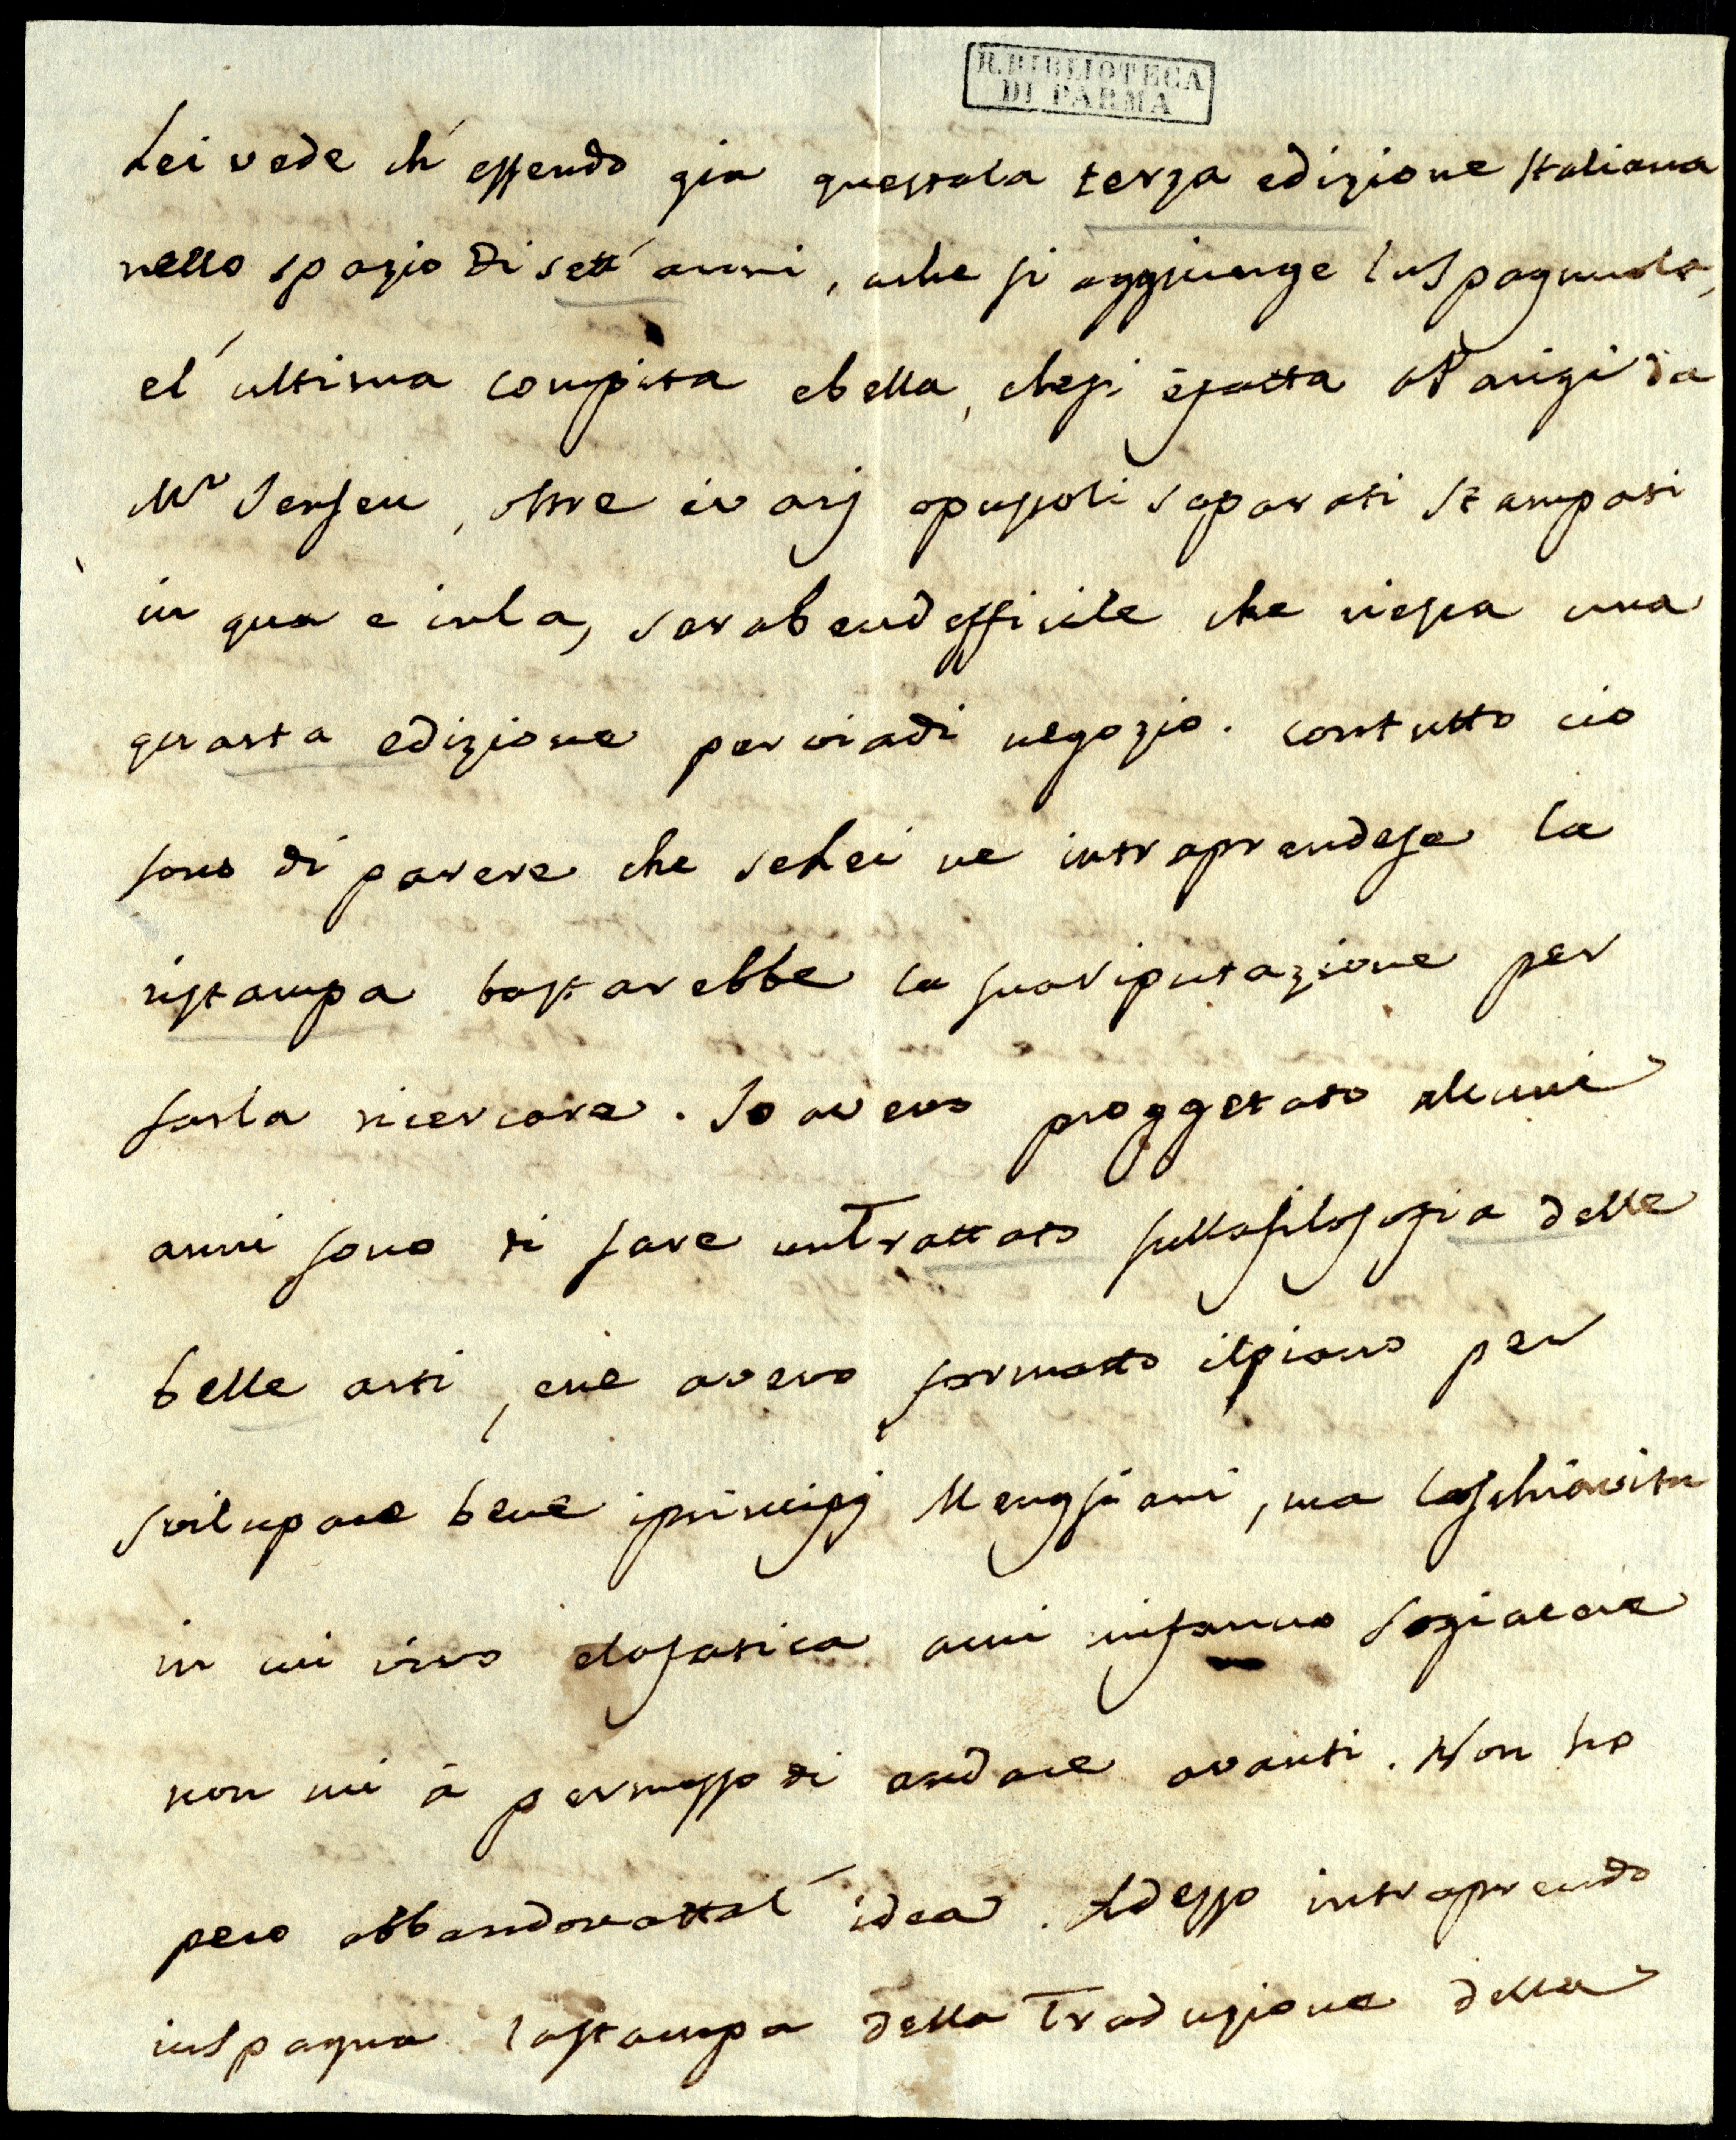 R. BIBLIOTECA
DI PARMA
Lei vede ch' essendo gia questa la terza edizione Italiana
nello spazio di sett' anni, a che si aggiunge la Spagnuola,
e l' ultima compita e bella, che si è fatta a Parigi da
Mr Jansen, oltre i varj opuscoli separati stampati
in qua e in la, sara ben difficile che riesca una
quarta edizione per via di negozio. Con tutto cio
sono di parere che se Lei ne intraprendese la
ristampa bastarebbe la sua riputazione per
farla ricercare. Io avevo proggetato alcuni
anni sono di fare un Trattato sulla filosofia delle
belle arti, e ne avevo formatto il piano per
svilupare bene i principj Mengsiani, ma la schiavitu
in cui vivo e la fatica a cui mi fanno sogiacere
non mi à permesso di andare avanti. Non ho
pero abbandonatta l' idea. Adesso intraprendo
in Spagna la stampa della Traduzione della